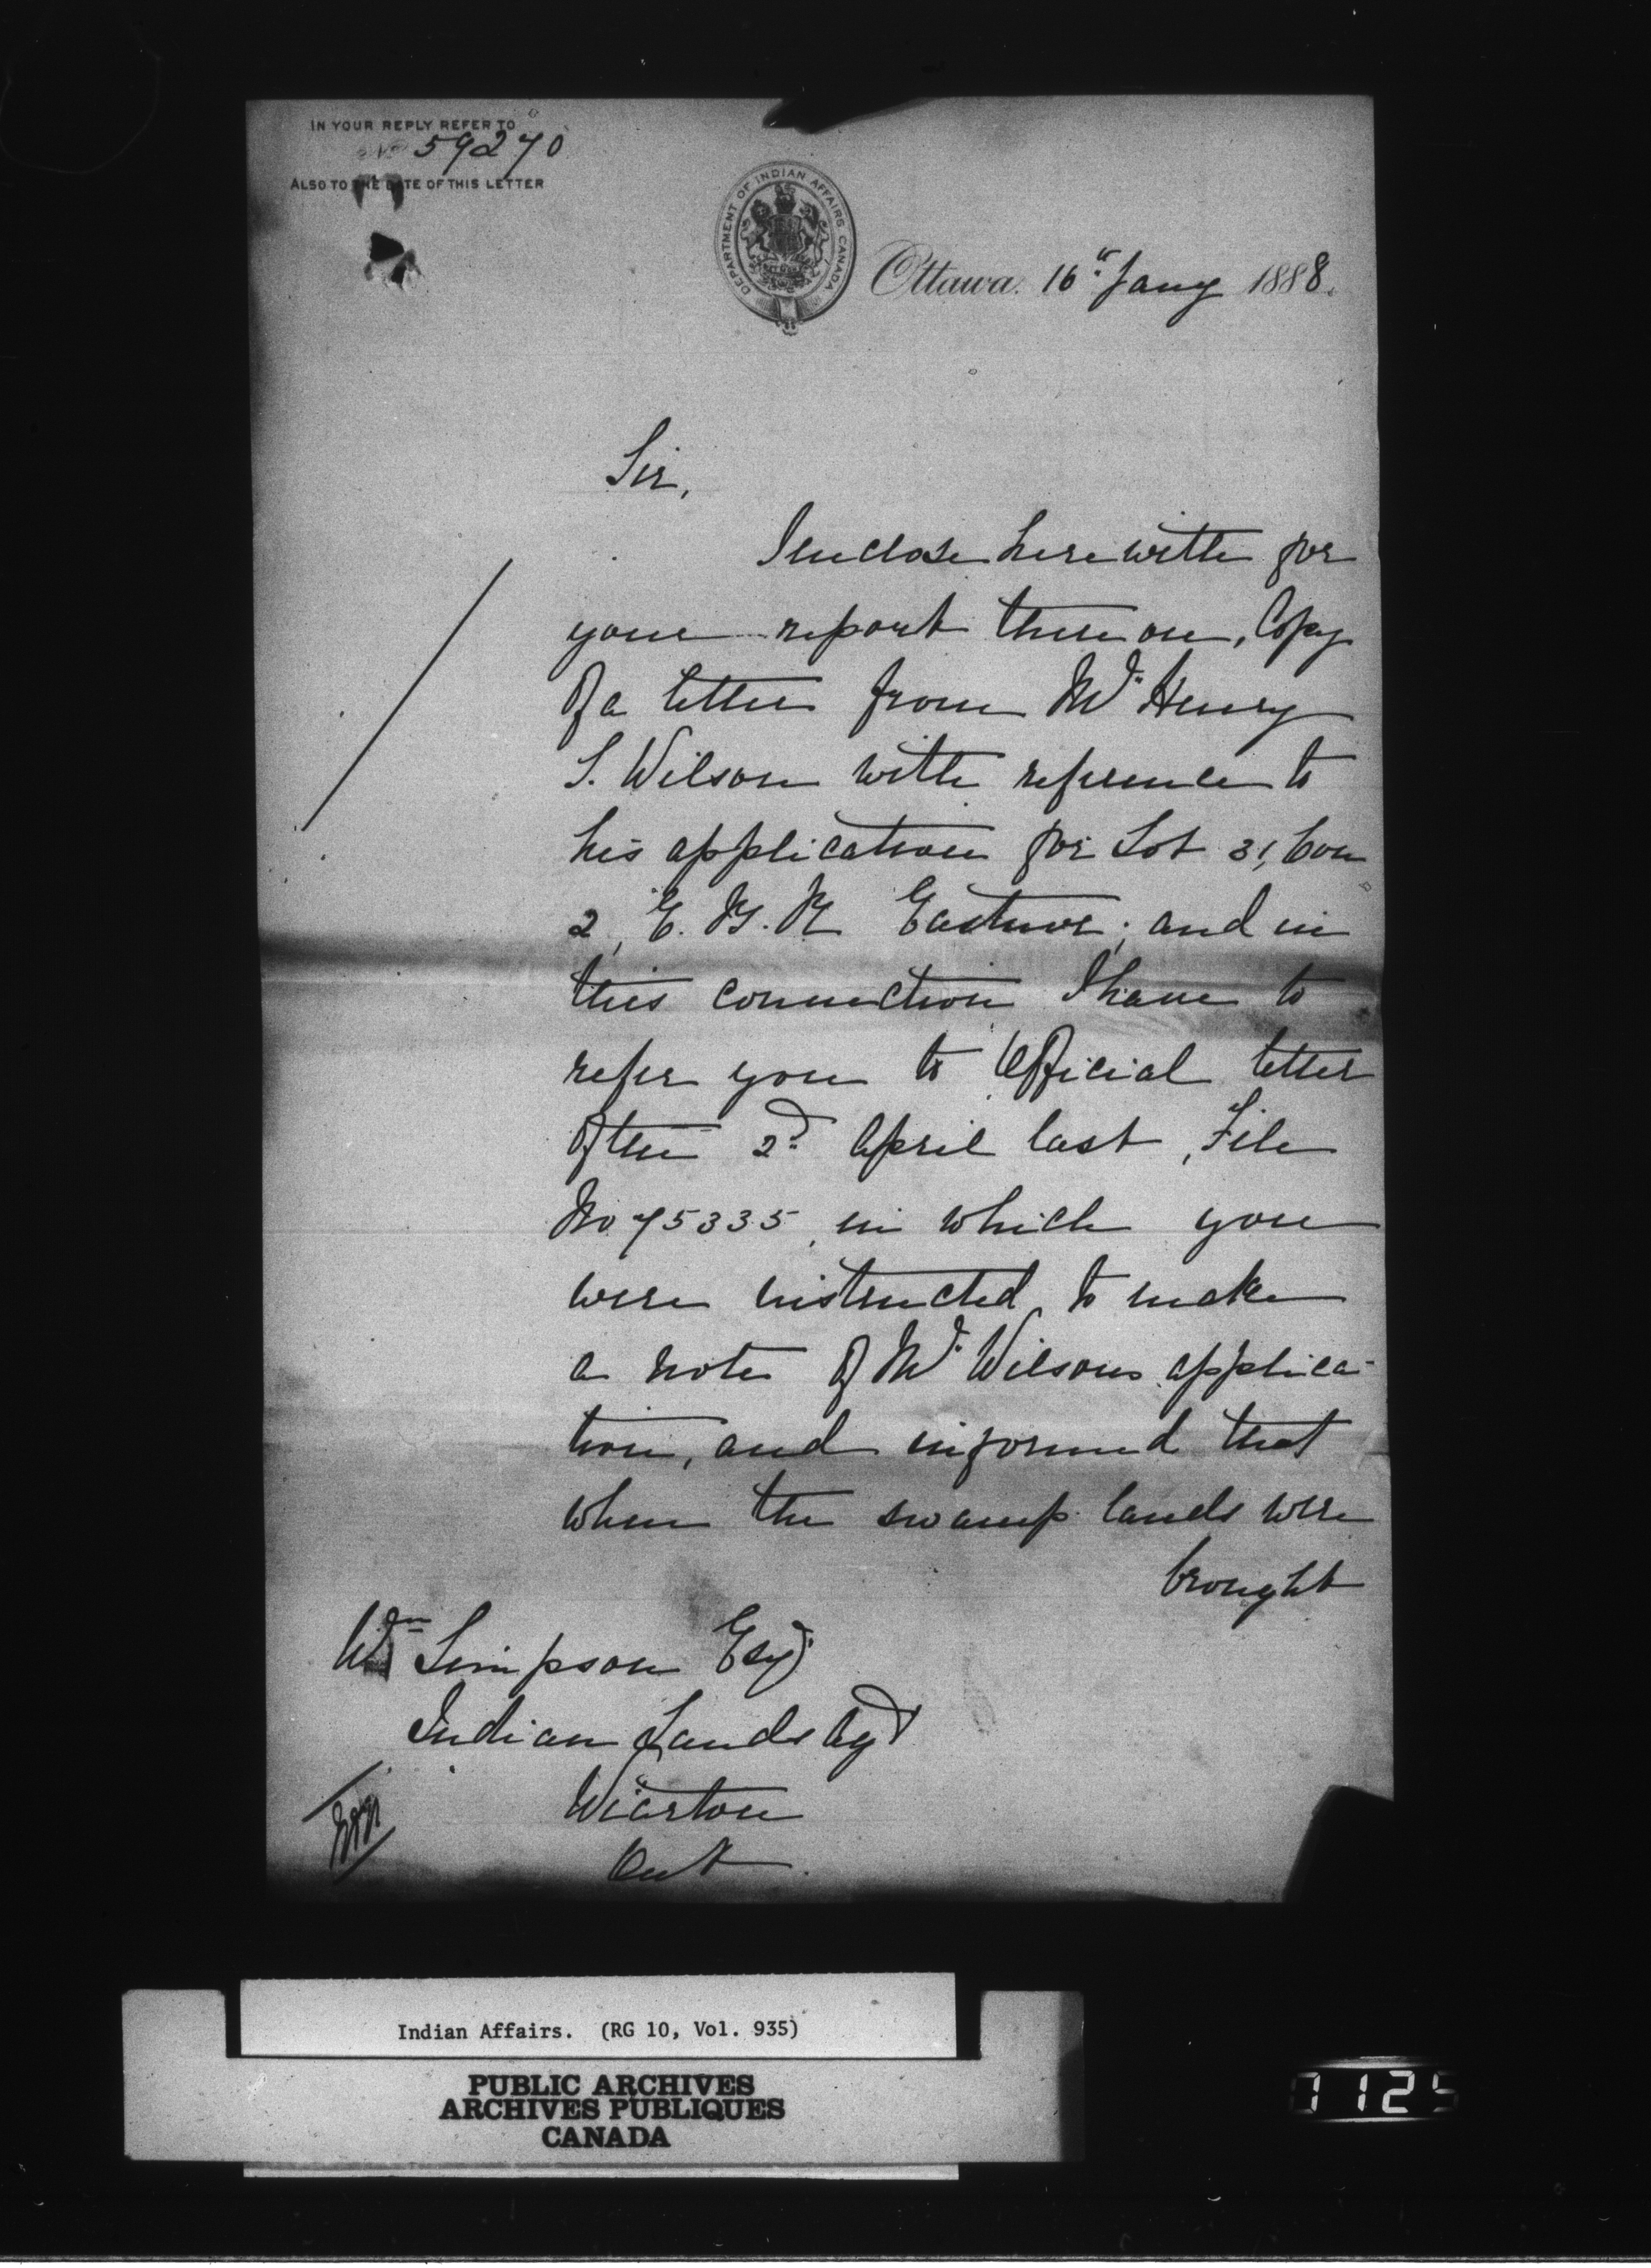 IN YOUR REPLY REFER TO
No 59270
ALSO TO THE DATE OF THIS LETTER
DEPARTMENT OF INDIAN AFFAIRS CANADA
Ottawa. 16th Jany 1888.
Sir,
I enclose herewith for
your report thereon, Copy
of a letter from Mr Henry
S. Wilson with reference to
his application for Lot 31, Con
2, E. B. R Eastnor; and in
this connection I have to
refer you to Official letter
of the 2d April last, File
No 75335, in which you
were instructed to make
a note of Mr Wilsons applica-
tion, and informed that
when the swamp lands were
brought
Wm Simpson Esq
Indian Lands Agt
Wiarton
Ont.
Indian Affairs. (RG 10, Vol. 935)
PUBLIC ARCHIVES
ARCHIVES PUBLIQUES
CANADA
1125